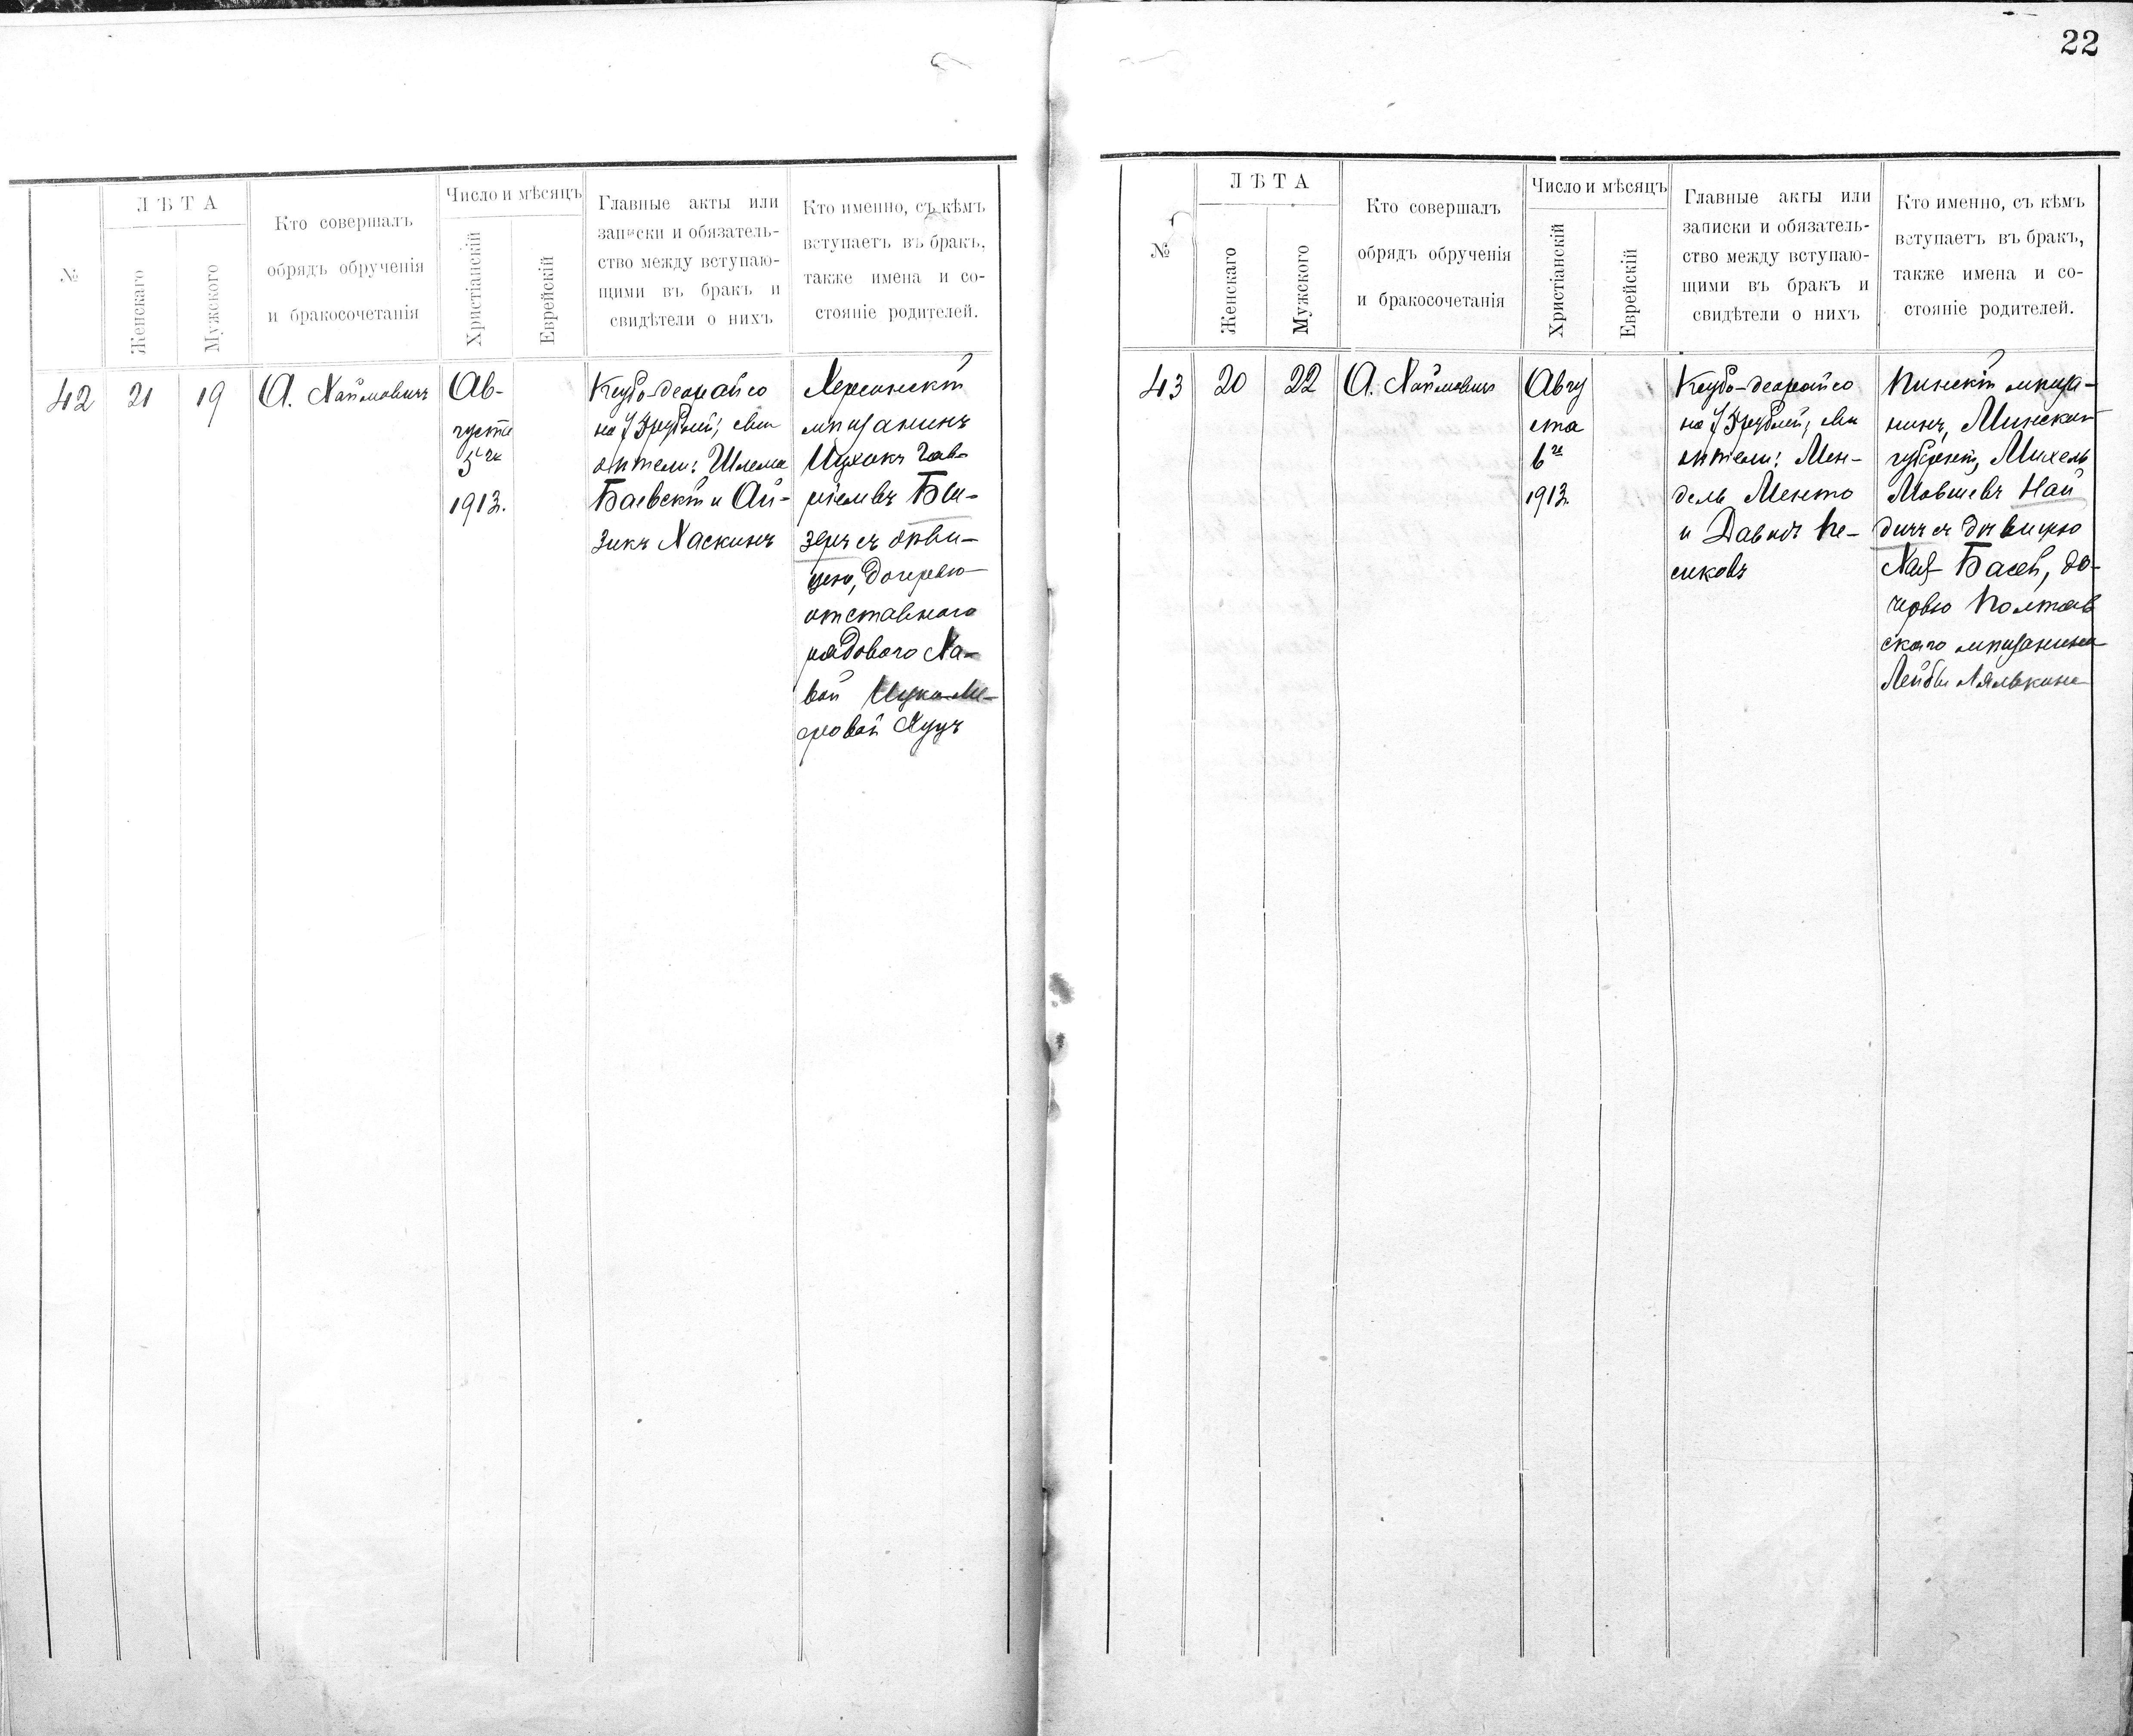 22
№
ЛѢТА
Женскаго
Мужского
Кто совершалъ
обрядъ обрученія
и бракосочетанія
Число и мѣсяцъ
Христіанскій
Еврейскій
Главные акты или
записки и обязатель-
ство между вступаю-
щими въ бракъ и
свидѣтели о нихъ
Кто именно, съ кѣмъ
вступаетъ въ бракъ,
также имена и со-
стояніе родителей.
42
21
19
А. Хаймовичъ
Ав-
густа
5го
1913.
Ксубо-деорайсо
на 75 рублей; сви
дѣтели: Шлема
Баевскій и Ай-
зикъ Хаскинъ
Херсонскій
мѣщанинъ
Ицхокъ Гав-
ріелевъ
съ дѣви-
цею, дочерью
отставного
рядового Ха-
вой
Куцъ
№
ЛѢТА
Женскаго
Мужского
Кто совершалъ
обрядъ обрученія
и бракосочетанія
Число и мѣсяцъ
Христіанскій
Еврейскій
Главные акты или
записки и обязатель-
ство между вступаю-
щими въ бракъ и
свидѣтели о нихъ
Кто именно, съ кѣмъ
вступаетъ въ бракъ,
также имена и со-
стояніе родителей.
43
20
22
А. Хаймовичъ
Авгу
ста
6го
1913.
Ксубо-деорайсо
на 75 рублей; сви
дѣтели: Мен-
дель Менто
и Давидъ Пе-
сиковъ
Пинскій мѣща-
нинъ, Минской
губерніи, Михель
Мовшевъ Най
дичъ съ дѣвицею
Хая Басей, до-
черью Полтав
скаго мѣщанина
Лейбы Лялькина